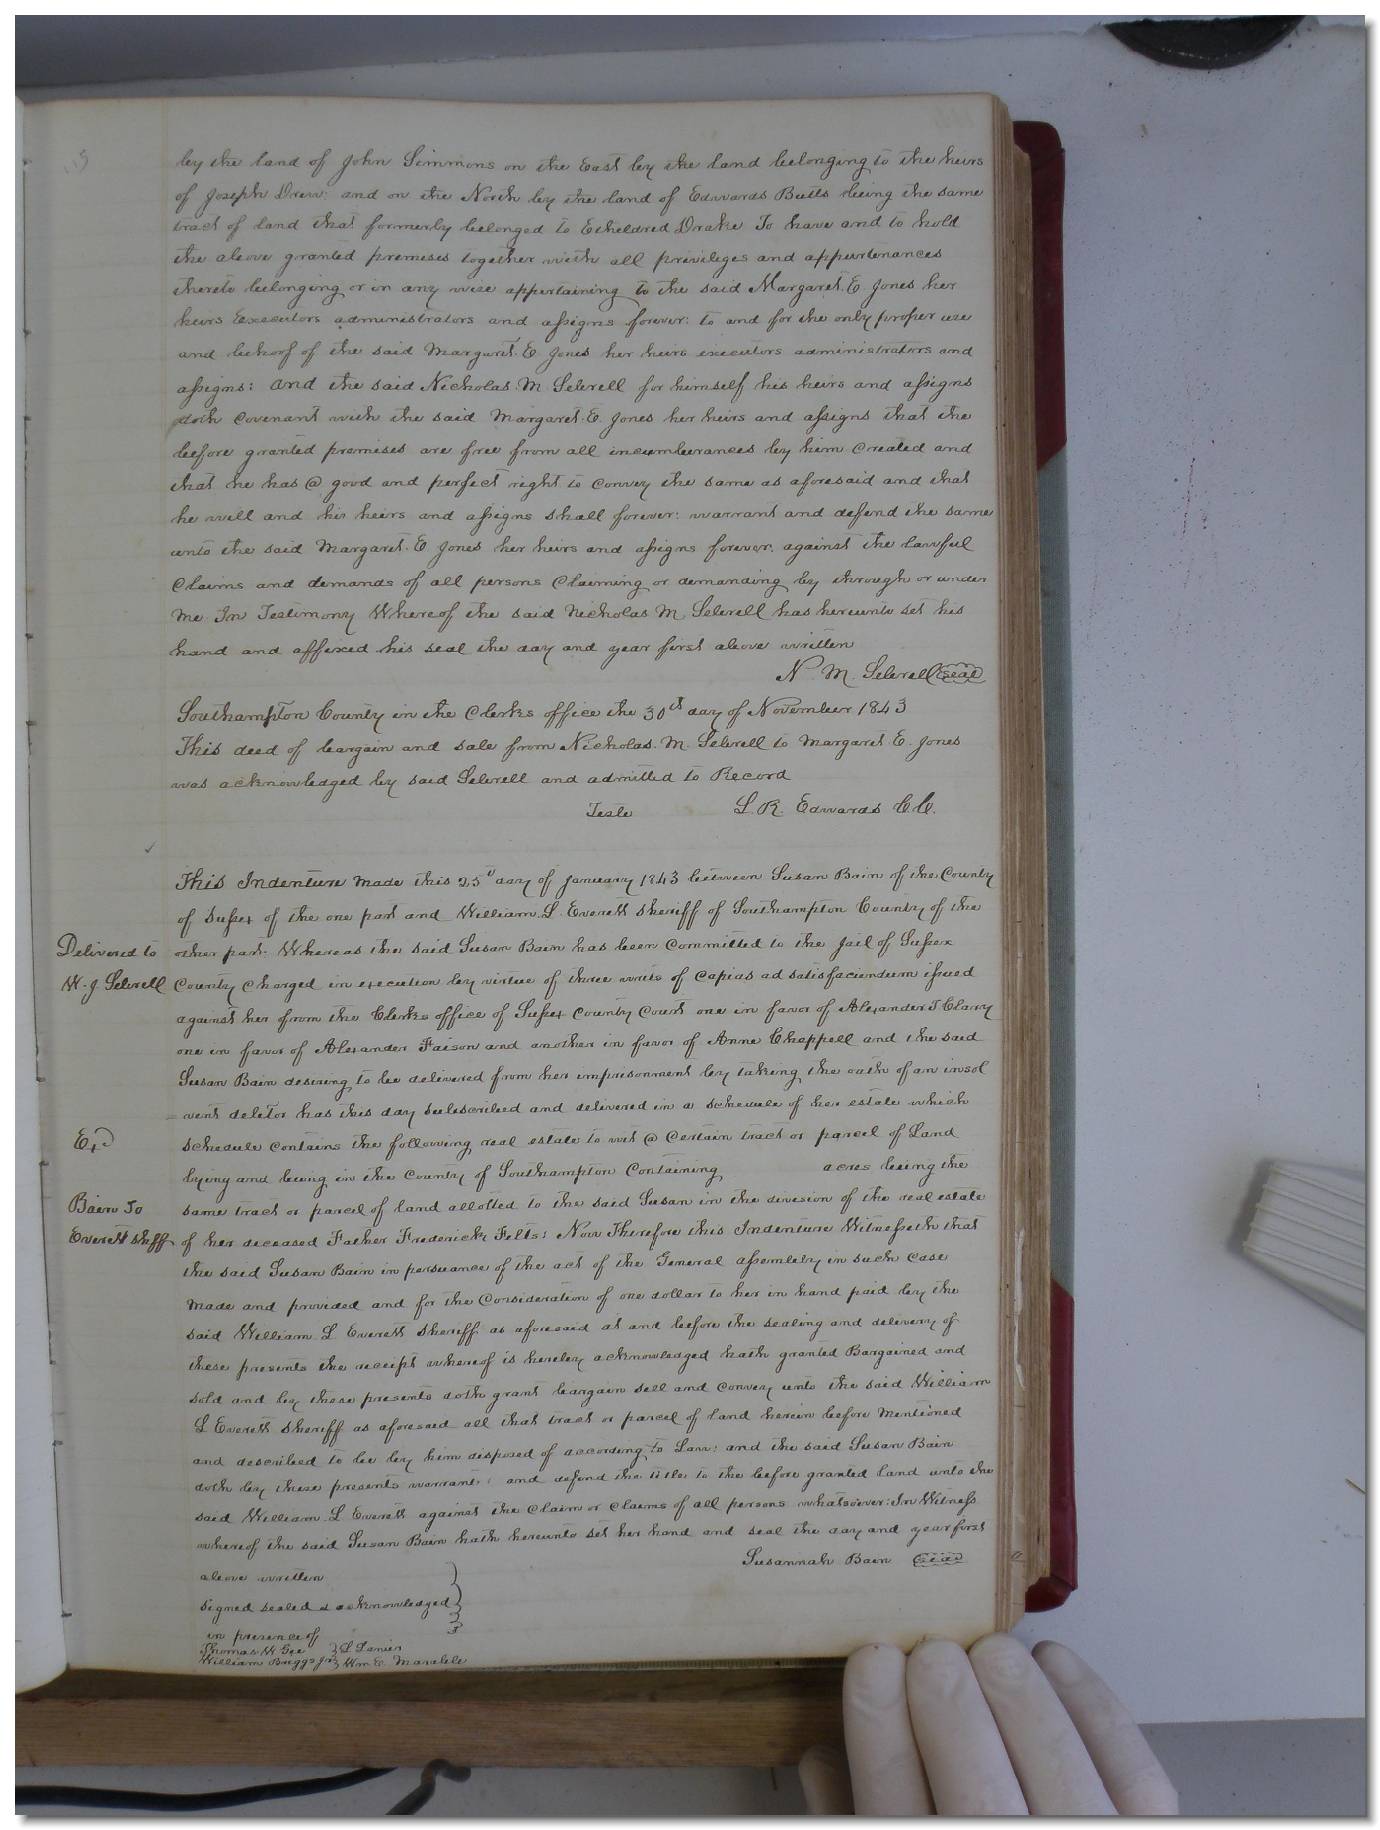 by the land of John Simmons on the East by the land belonging to the heirs
of Joseph Drew: and on the North by the land of Edwards Butts being the same
tract of land that formerly belonged to Etheldred Drake To have and to hold
the above granted premises together with all privileges and appurtenances
thereto belonging or in any wise appertaining to the said Margaret. E. Jones her
heirs Executors administrators and assigns forever: to and for the only proper use
and behoof of the said Margaret. E Jones her heirs executors administrators and
assigns: and the said Nicholas. M. Sebrell for himself his heirs and assigns
doth Covenant with the said Margaret. E. Jones her heirs and assigns that the
before granted premises are free from all incumberances by him Created and
that he has @ good and perfect right to Convey the same as aforesaid and that
he will and his heirs and assigns shall forever: warrant and defend the same
unto the said Margaret. E Jones her heirs and assigns forever. against the lawful
Claims and demands of all persons Claiming or demanding by through or under
me In Testimony Whereof the said Nicholas M. Sebrell has hereunto set his
hand and affixed his seal the day and year first above written
N. M. Sebrell seal
Southampton County in the Clerks office the 30th day of November 1843
This deed of bargain and sale from Nicholas. M. Sebrell to Margaret. E. Jones
was acknowledged by said Sebrell and admitted to Record
Teste L. R. Edwards C. C.
This Indenture Made this 25th day of January 1843 between Susan Bain of the County
of Sussex of the one part and William. L. Everett Sheriff of Southampton County of the
Delivered to
other part: Whereas the said Susan Bain has been Committed to the Jail of Sussex
W. J. Sebrell
County Charged in execution by virtue of three writs of Capias ad satisfaciendum issued
against her from the Clerks office of Sussex County Court one in favor of Alexander T Clary
one in favor of Alexander Faison and another in favor of Anne Chappell and the said
Susan Bain desiring to be delivered from her imprisonment by taking the oath of an insol
=vent debtor has this day subscribed and delivered in a schedule of her estate which
Exd
schedule contains the following real estate to wit @ Certain tract or parcel of Land
lying and being in the County of Southampton Containing acres being the
Bain To
same tract or parcel of land allotted to the said Susan in the division of the real estate
Everett Shff
of her deceased Father Frederick Felts: Now Therefore this Indenture Witnesseth that
the said Susan Bain in persuance of the act of the General assembly in such Case
Made and provided and for the Consideration of one dollar to her in hand paid by the
said William. L Everett Sheriff as aforesaid at and before the sealing and delivery of
these presents the receipt whereof is hereby acknowledged hath granted Bargained and
sold and by these presents doth grant bargain sell and Convey unto the said William
L Everett Sheriff as aforesaid all that tract or parcel of land herein before Mentioned
and described to be by him disposed of according to Law: and the said Susan Bain
doth by these presents warrant: and defend the title to the before granted land unto the
said William. L Everett against the Claim or Claims of all persons whatsoever: In Witness
whereof the said Susan Bain hath hereunto set her hand and seal the day and year first
above written
Susannah Bain seal
signed sealed & acknowledged
in presence of
Thomas W Gee L Lanier
William Briggs Jr Wm E. Marable